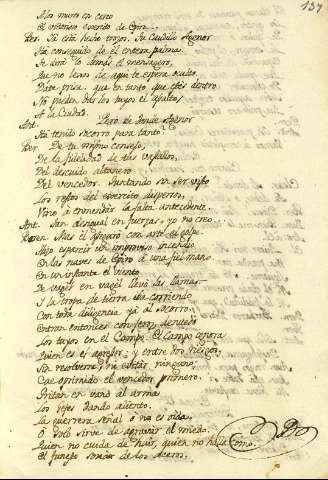 137
A los muros en cerco
El victorioso exercito de Epiro.
Ber. Ya está hecho trozos. Su Caudillo Agenor
Ha conseguido de él entera palma.
Te dirá lo demas el mensagero,
Que no lexos de aqui te espera oculto.
Date prisa, que en tanto que estés dentro
No pueden dar los tuyos el asalto
A la Ciudad.
Ant. Pero de donde Agenor
Ha tenido socorro para tanto?
Ber. De tu mismo consejo,
De la fidelidad de tus vasallos,
Del descuido altanero
Del vencedor. Juntando sin ser visto
Los restos del exercito disperso,
Vino á enmendar la falta antecedente.
Ant. Tan desigual en fuerzas, yo no creo.
Beren. Mas él aseguró con arte el golpe.
Hizo esparcir un improviso incendio
En las naves de Epiro á una fiel mano.
En un instante el viento
De vagel en vagel llevó las llamas.
Y la tropa de tierra iba corriendo
Con toda diligencia ya al socorro.
Entran entonces con feroz denuedo
Los tuyos en el Campo. El Campo ignora
Quien es el agresor, y entre dos riesgos,
Sin resolverse, ni evitar ninguno,
Cae oprimido el vencedor primero.
Gritan en vano al arma
Los Gefes dando aliento.
La guerrera señal ó no es oida,
O solo sirve de agravar el miedo.
Quien no cuida de huir, quien no halla como.
El funesto sonido de los aceros,